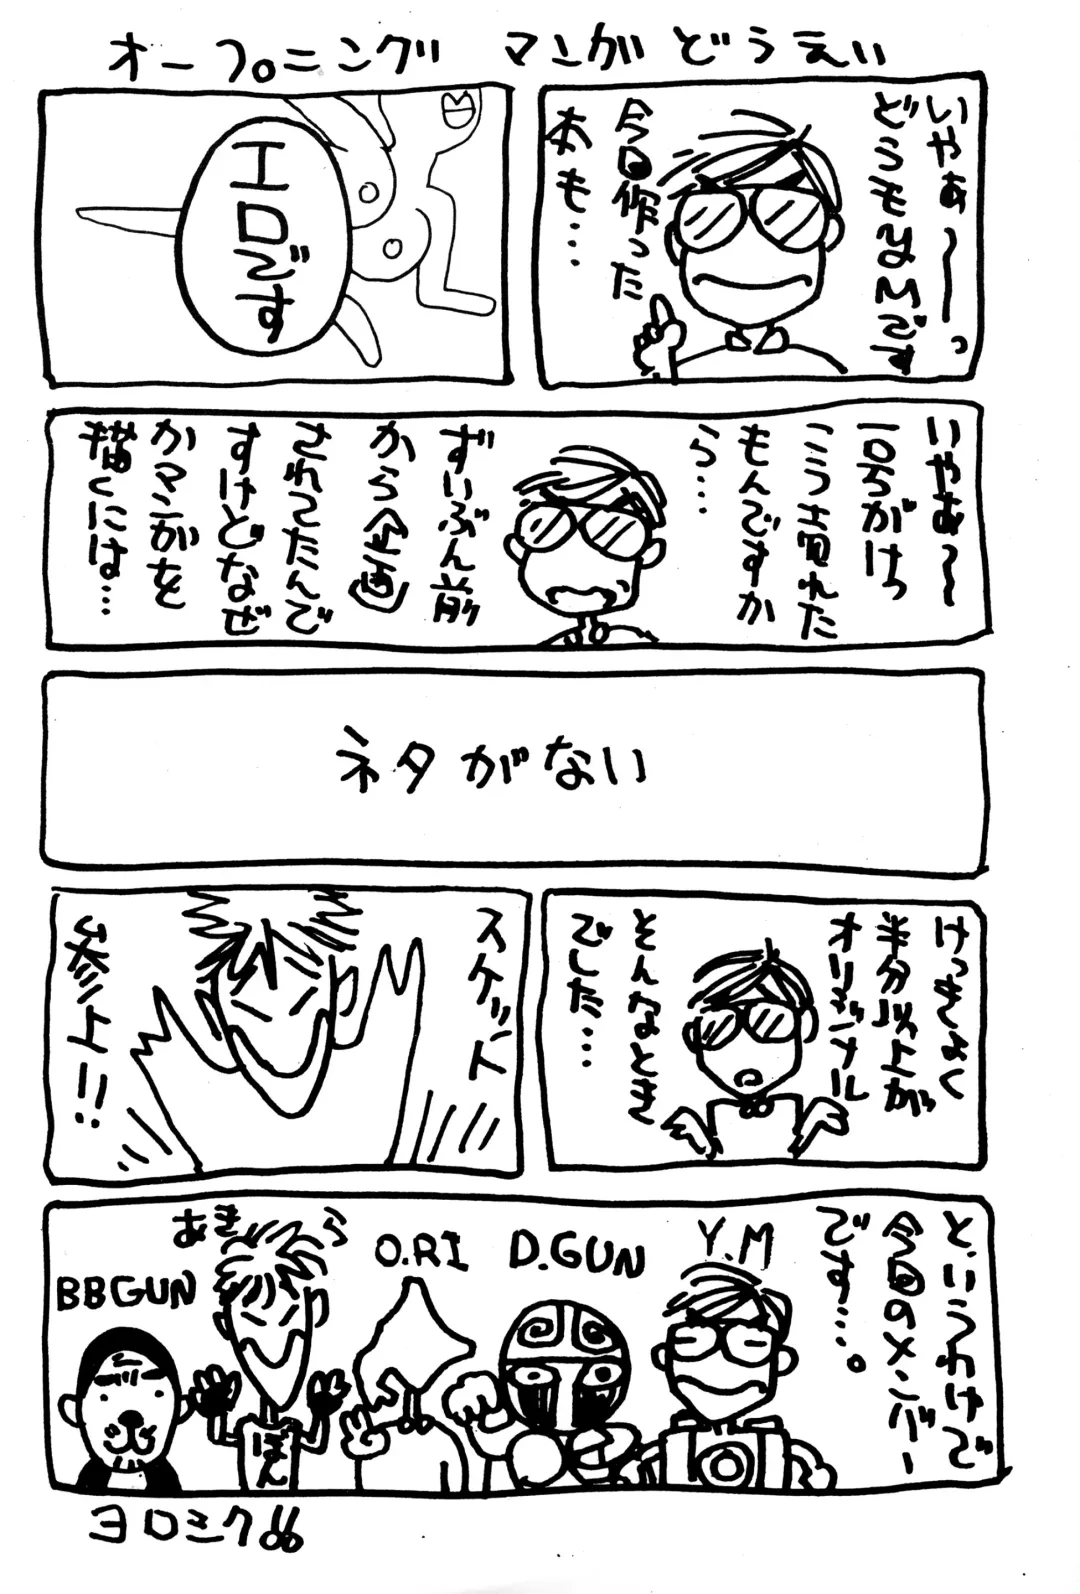 オープニング マンガ どうえい
いやぁ〜〜っ
どうもY.Mです
今回作った
本も…
エロです
いやぁ〜〜
一日ちがけっ
こう売れた
もんですか
ら…
ずいぶん前
から企画
されてたんで
すけどなぜ
かマンガを
描くには…
ネタがない
けっきょく
半分以上が
オリジナル
そんなとき
でした…
スケット
参上!!
というわけで
今回のメンバー
です…。
Y.M
D.GUN
O.RI
あきら
BBGUN
ぼん
ヨロシク